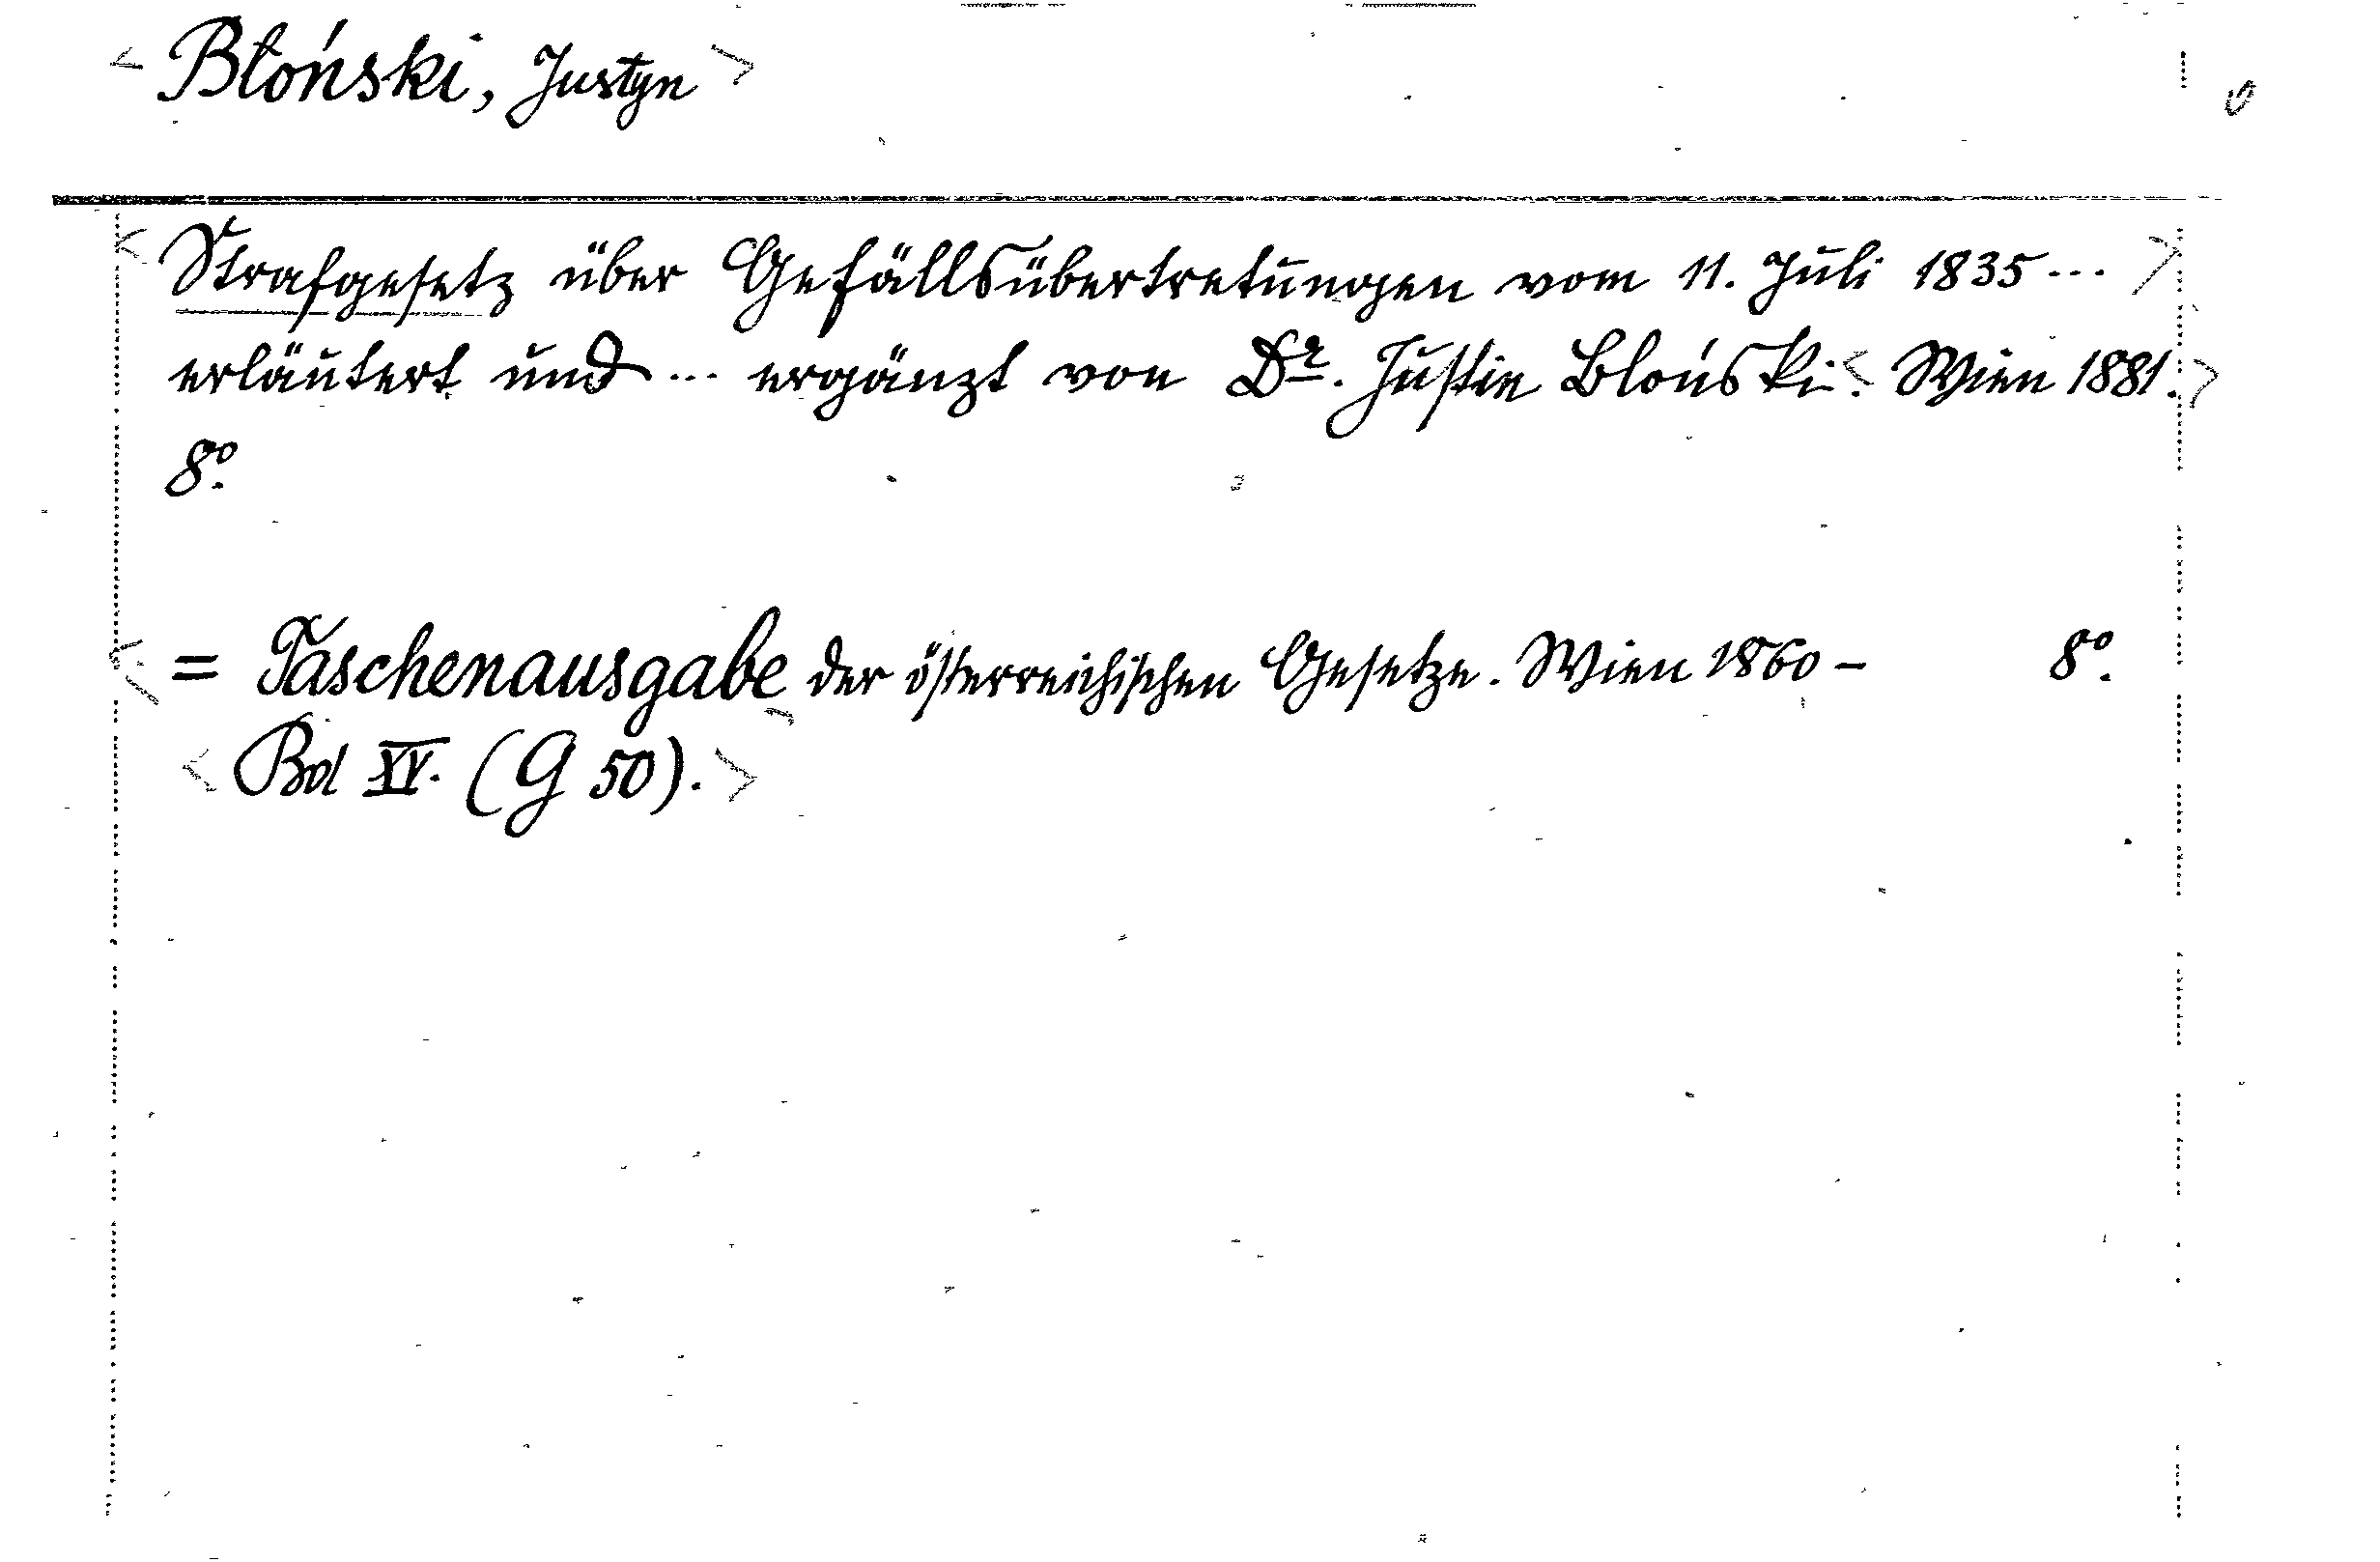 < Błoński, Justyn >
< Strafgesetz über Gefällsübertretungen vom 11. Juli 1835 ... >
erläutert und ... ergänzt von Dr. Justin Błoński < . Wien 1881. >
8°.
< = Taschenausgabe der österreichischen Gesetze. Wien 1860 – 8°.
< Bd XV. (G 50). >